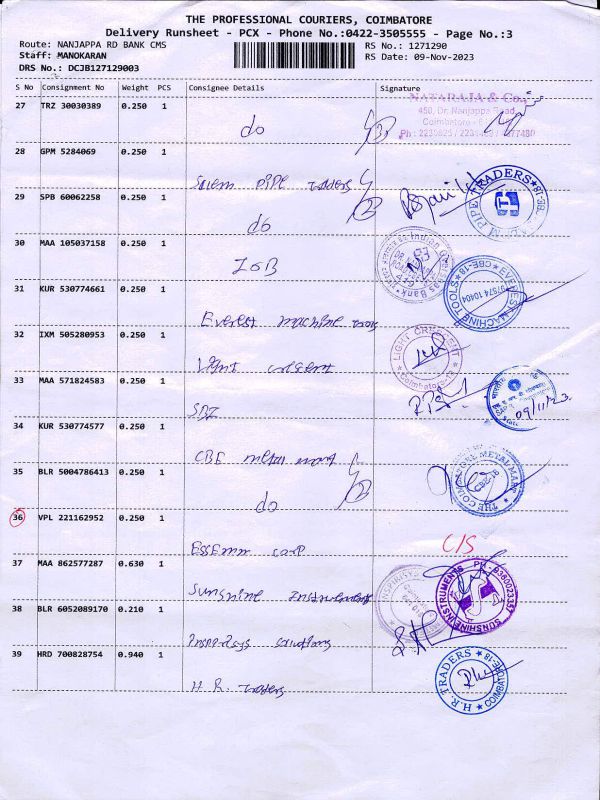 THE PROFESSIONAL COURIERS, COIMBATORE
Delivery Runsheet - PCX - Phone No.:0422-3505555 - Page No.:3
Route: NANJAPPA RD BANK CMS RS No.: 1271290
Staff: MANOKARAN RS Date: 09-Nov-2023
DRS No.: DCJB127129003
S No Consignment No Weight PCS Consignee Details Signature
27 TRZ 30030389 0.250 1
NATARAJA & Co.,
450, Dr. Nanjappa Road,
Coimbatore
do
28 GPM 5284069 0.250 1
Salem PIPE Traders
29 SPB 60062258 0.250 1
PIPE TRADERS
do
30 MAA 105037158 0.250 1
IOB
31 KUR 530774661 0.250 1
EVEREST MACHINE TOOLS CBE-18
Everest machine Tools
32 IXM 505280953 0.250 1
LIGHT CRESCENT Coimbatore
Light crescent
33 MAA 571824583 0.250 1
SBI
09/11/23
34 KUR 530774577 0.250 1
CBE metal mart
35 BLR 5004786413 0.250 1
THE COIMBATORE METAL MART
do
36 VPL 221162952 0.250 1
Essemm carp C/S
37 MAA 862577287 0.630 1
Sunshine Instruments
SUNSHINE INSTRUMENTS
38 BLR 6052089170 0.210 1
solutions
39 HRD 700828754 0.940 1
H.R. TRADERS COIMBATORE-18
H. R. Traders